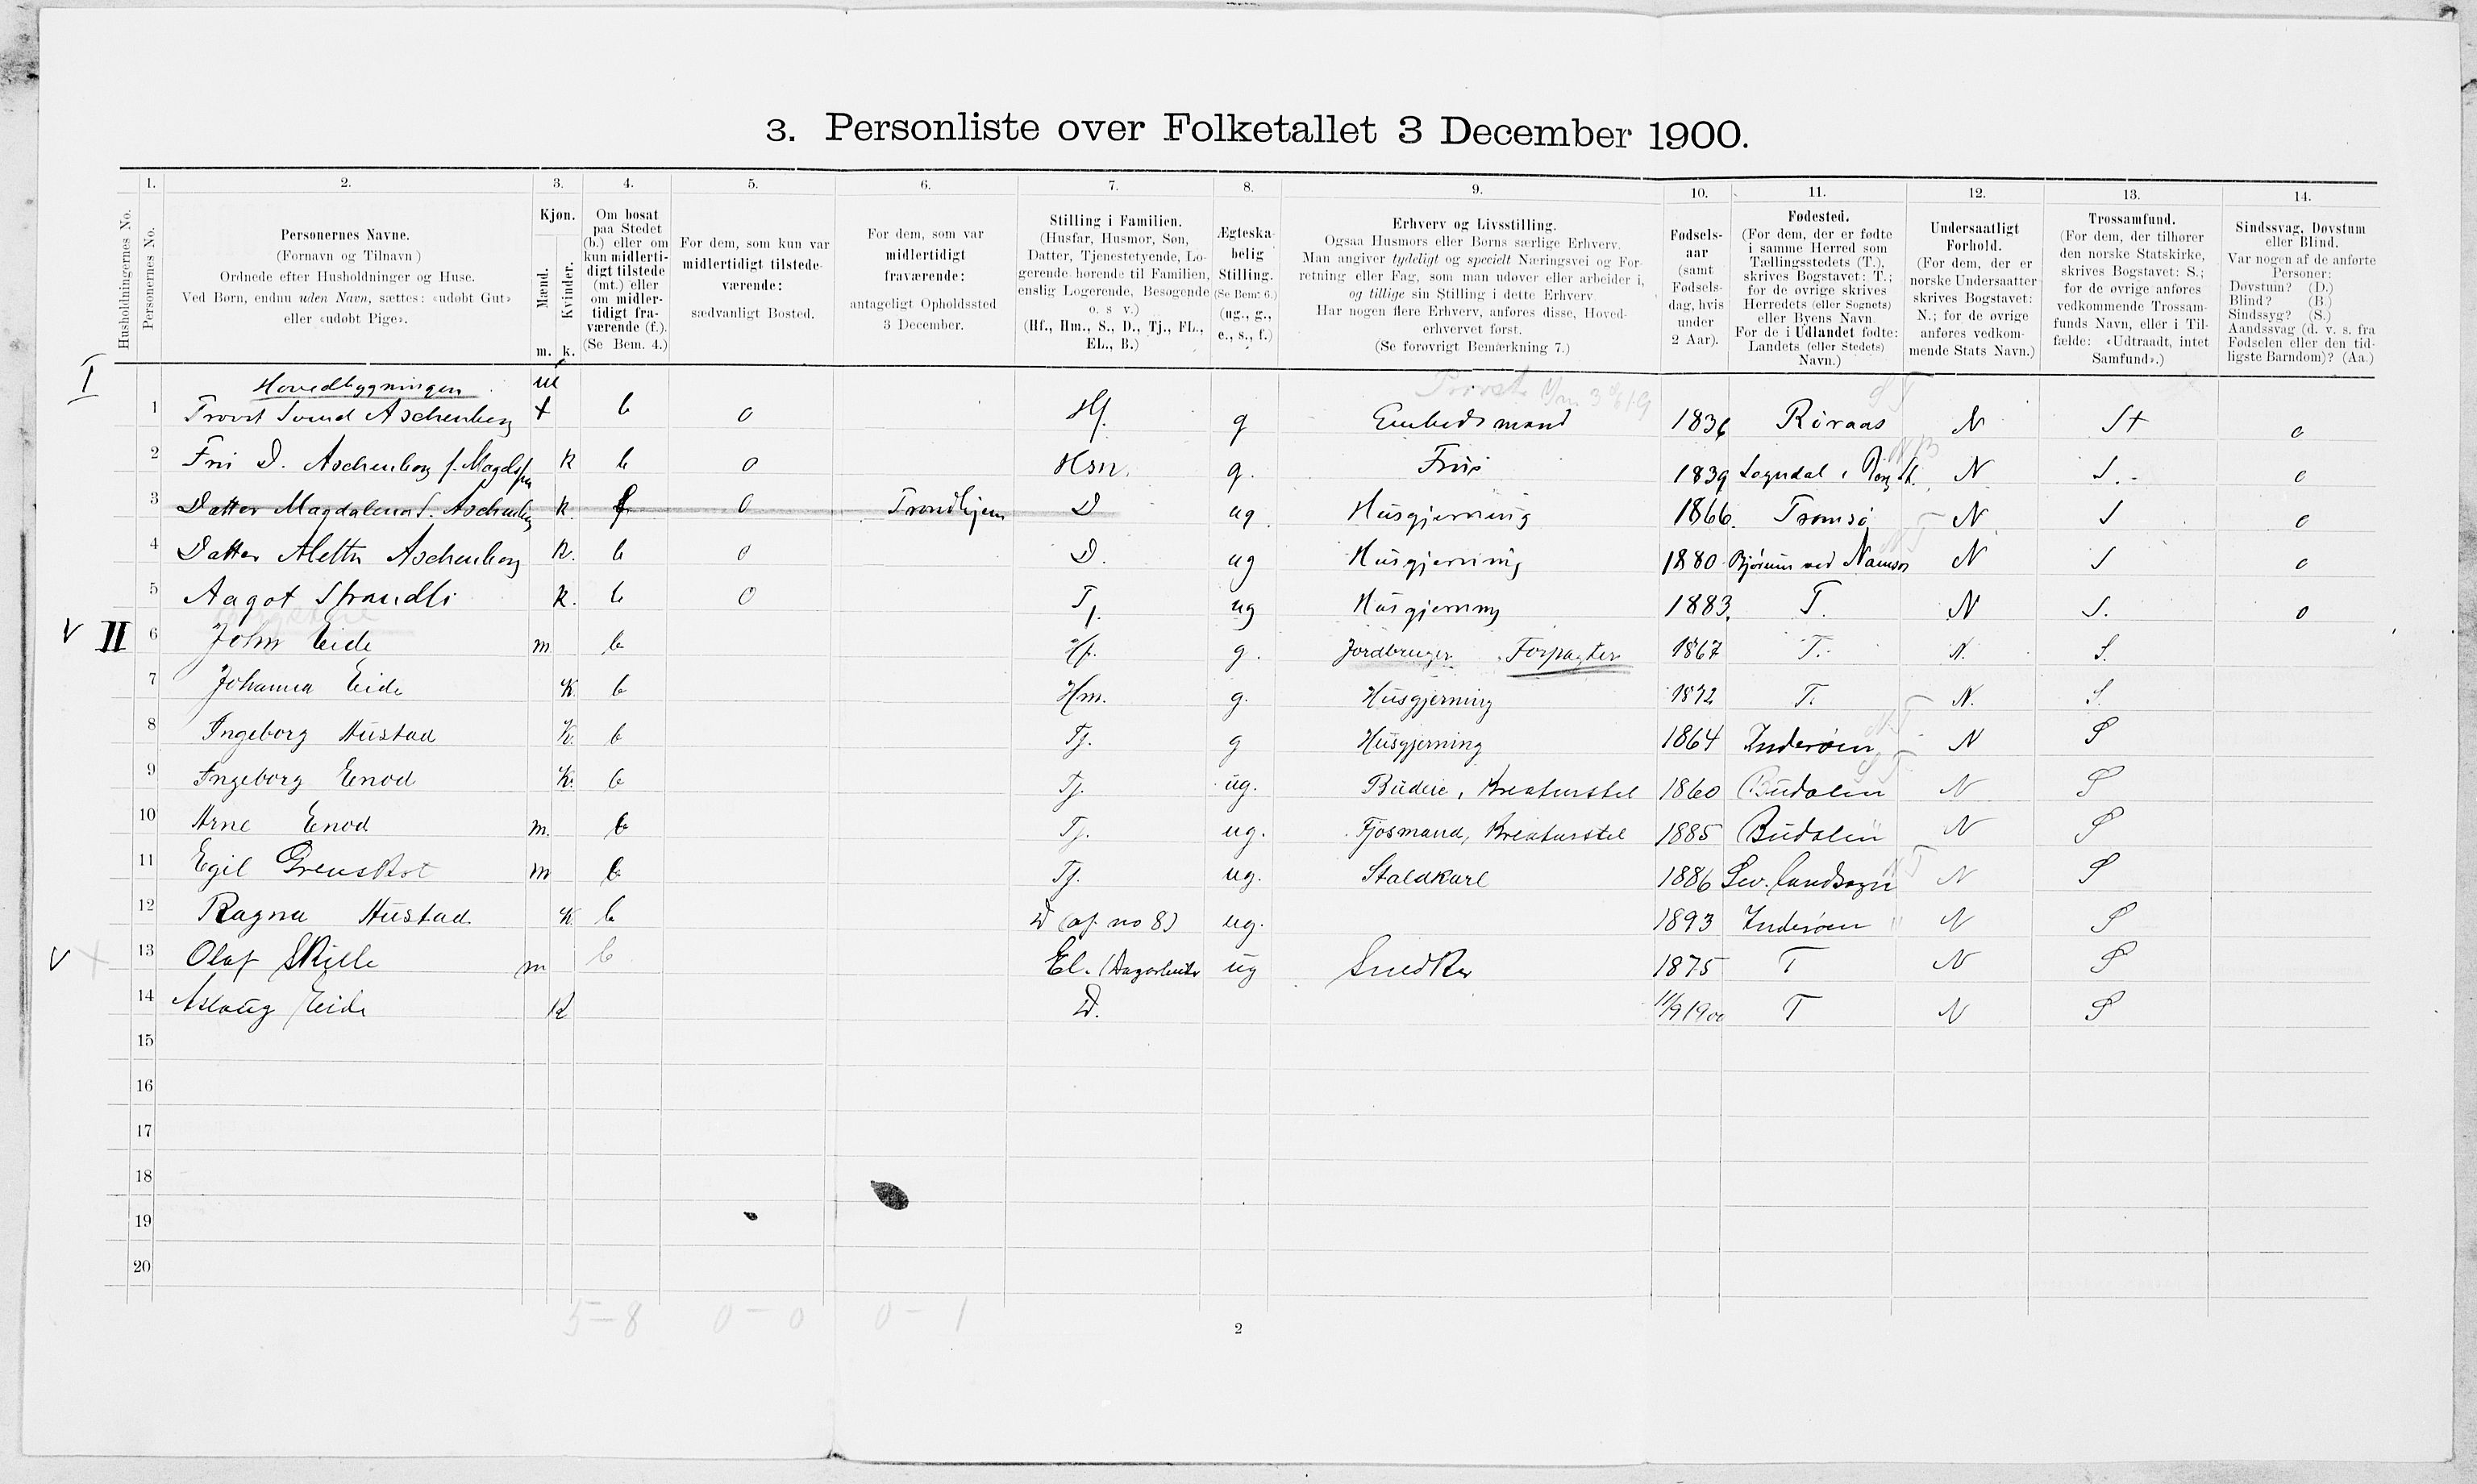 3. Personliste over Folketallet 3 December 1900.
1. 2. 3. 4. 5. 6. 7. 8. 9. 10. 11. 12. 13. 14.
Husholdningernes No.
Personernes No.
Personernes Navne.
(Fornavn og Tilnavn)
Ordnede efter Husholdninger og Huse.
Ved Børn, endnu uden Navn, sættes: «udøbt Gut»
eller «udøbt Pige».
Kjøn.
Mænd.
Kvinder.
m. k.
Om bosat
paa Stedet
(b.) eller om
kun midlerti-
digt tilstede
(mt.) eller
om midler-
tidigt fra-
værende (f.).
(Se Bem. 4.)
For dem, som kun var
midlertidigt tilstede-
værende:
sædvanligt Bosted.
For dem, som var
midlertidigt
fraværende:
antageligt Opholdssted
3 December.
Stilling i Familien.
(Husfar, Husmor, Søn,
Datter, Tjenestetyende, Lo-
gerende hørende til Familien,
enslig Logerende, Besøgende
o. s. v.)
(Hf., Hm., S., D., Tj., FL.,
EL., B.)
Ægteska-
belig
Stilling.
(Se Bem. 6.)
(ug., g.,
e., s., f.)
Erhverv og Livsstilling.
Ogsaa Husmors eller Børns særlige Erhverv.
Man angiver tydeligt og specielt Næringsvei og For-
retning eller Fag, som man udøver eller arbeider i,
og tillige sin Stilling i dette Erhverv.
Har nogen flere Erhverv, anføres disse, Hoved-
erhvervet først.
(Se forøvrigt Bemærkning 7.)
Fødsels-
aar
(samt
Fødsels-
dag, hvis
under
2 Aar).
Fødested.
(For dem, der er fødte
i samme Herred som
Tællingsstedets (T.),
skrives Bogstavet: T.;
for de øvrige skrives
Herredets (eller Sognets)
eller Byens Navn.
For de i Udlandet fødte:
Landets (eller Stedets)
Navn.)
Undersaatligt
Forhold.
(For dem, der er
norske Undersaatter
skrives Bogstavet:
N.; for de øvrige
anføres vedkom-
mende Stats Navn.)
Trossamfund.
(For dem, der tilhører
den norske Statskirke,
skrives Bogstavet: S.;
for de øvrige anføres
vedkommende Trossam-
funds Navn, eller i Til-
fælde: «Udtraadt, intet
Samfund».)
Sindssvag, Døvstum
eller Blind.
Var nogen af de anførte
Personer:
Døvstum? (D.)
Blind? (B.)
Sindssyg? (S.)
Aandssvag (d. v. s. fra
Fødselen eller den tid-
ligste Barndom)? (Aa.)
I Hovedbygningen m
1 Aschenberg b 0 Hf. g Embedsmand 1836 Røraas N St 0
2 D. Aschenberg f. k b 0 g. Frue 1839 Sogndal N S. 0
3 Datter Magdalena S. Aschenberg k. f 0 Trondhjem D ug. Husgjerning 1866. Tromsø N S 0
4 Datter Aletta Aschenberg k. b 0 D. ug Husgjerning 1880 ved Namsos N S 0
5 Aagot Strandli k. b 0 Tj. ug Husgjerning 1883. T. N S. 0
V II 6 John Eide m b Hf. g. Jordbruger Forpagter 1867 T. N. S.
7 Johanna Eide K. b Hm. g. Husgjerning 1872 T. N. S.
8 Ingeborg Hustad K. b Tj. g Husgjerning 1864 Inderøen N S
9 Ingeborg Enod K. b Tj. ug. Budeie, Kreaturstel 1860 Budalen N S
10 Arne Enod m. b Tj. ug. Fjøsmand, Kreaturstel 1885 Budalen N S
11 Egil Grenskot m b Tj. ug. Staldkarl 1886 Lev. landsogn N S
12 Ragna Hustad K b D (af no 8) ug. 1893 Inderøen N S
V 13 Olaf Skille m b El. ug Snedker 1875 T N S
14 Aslaug Eide K D. 11/9 1900 T N S
15
16
17
18
19
20
5-8 0-0 0-1
2